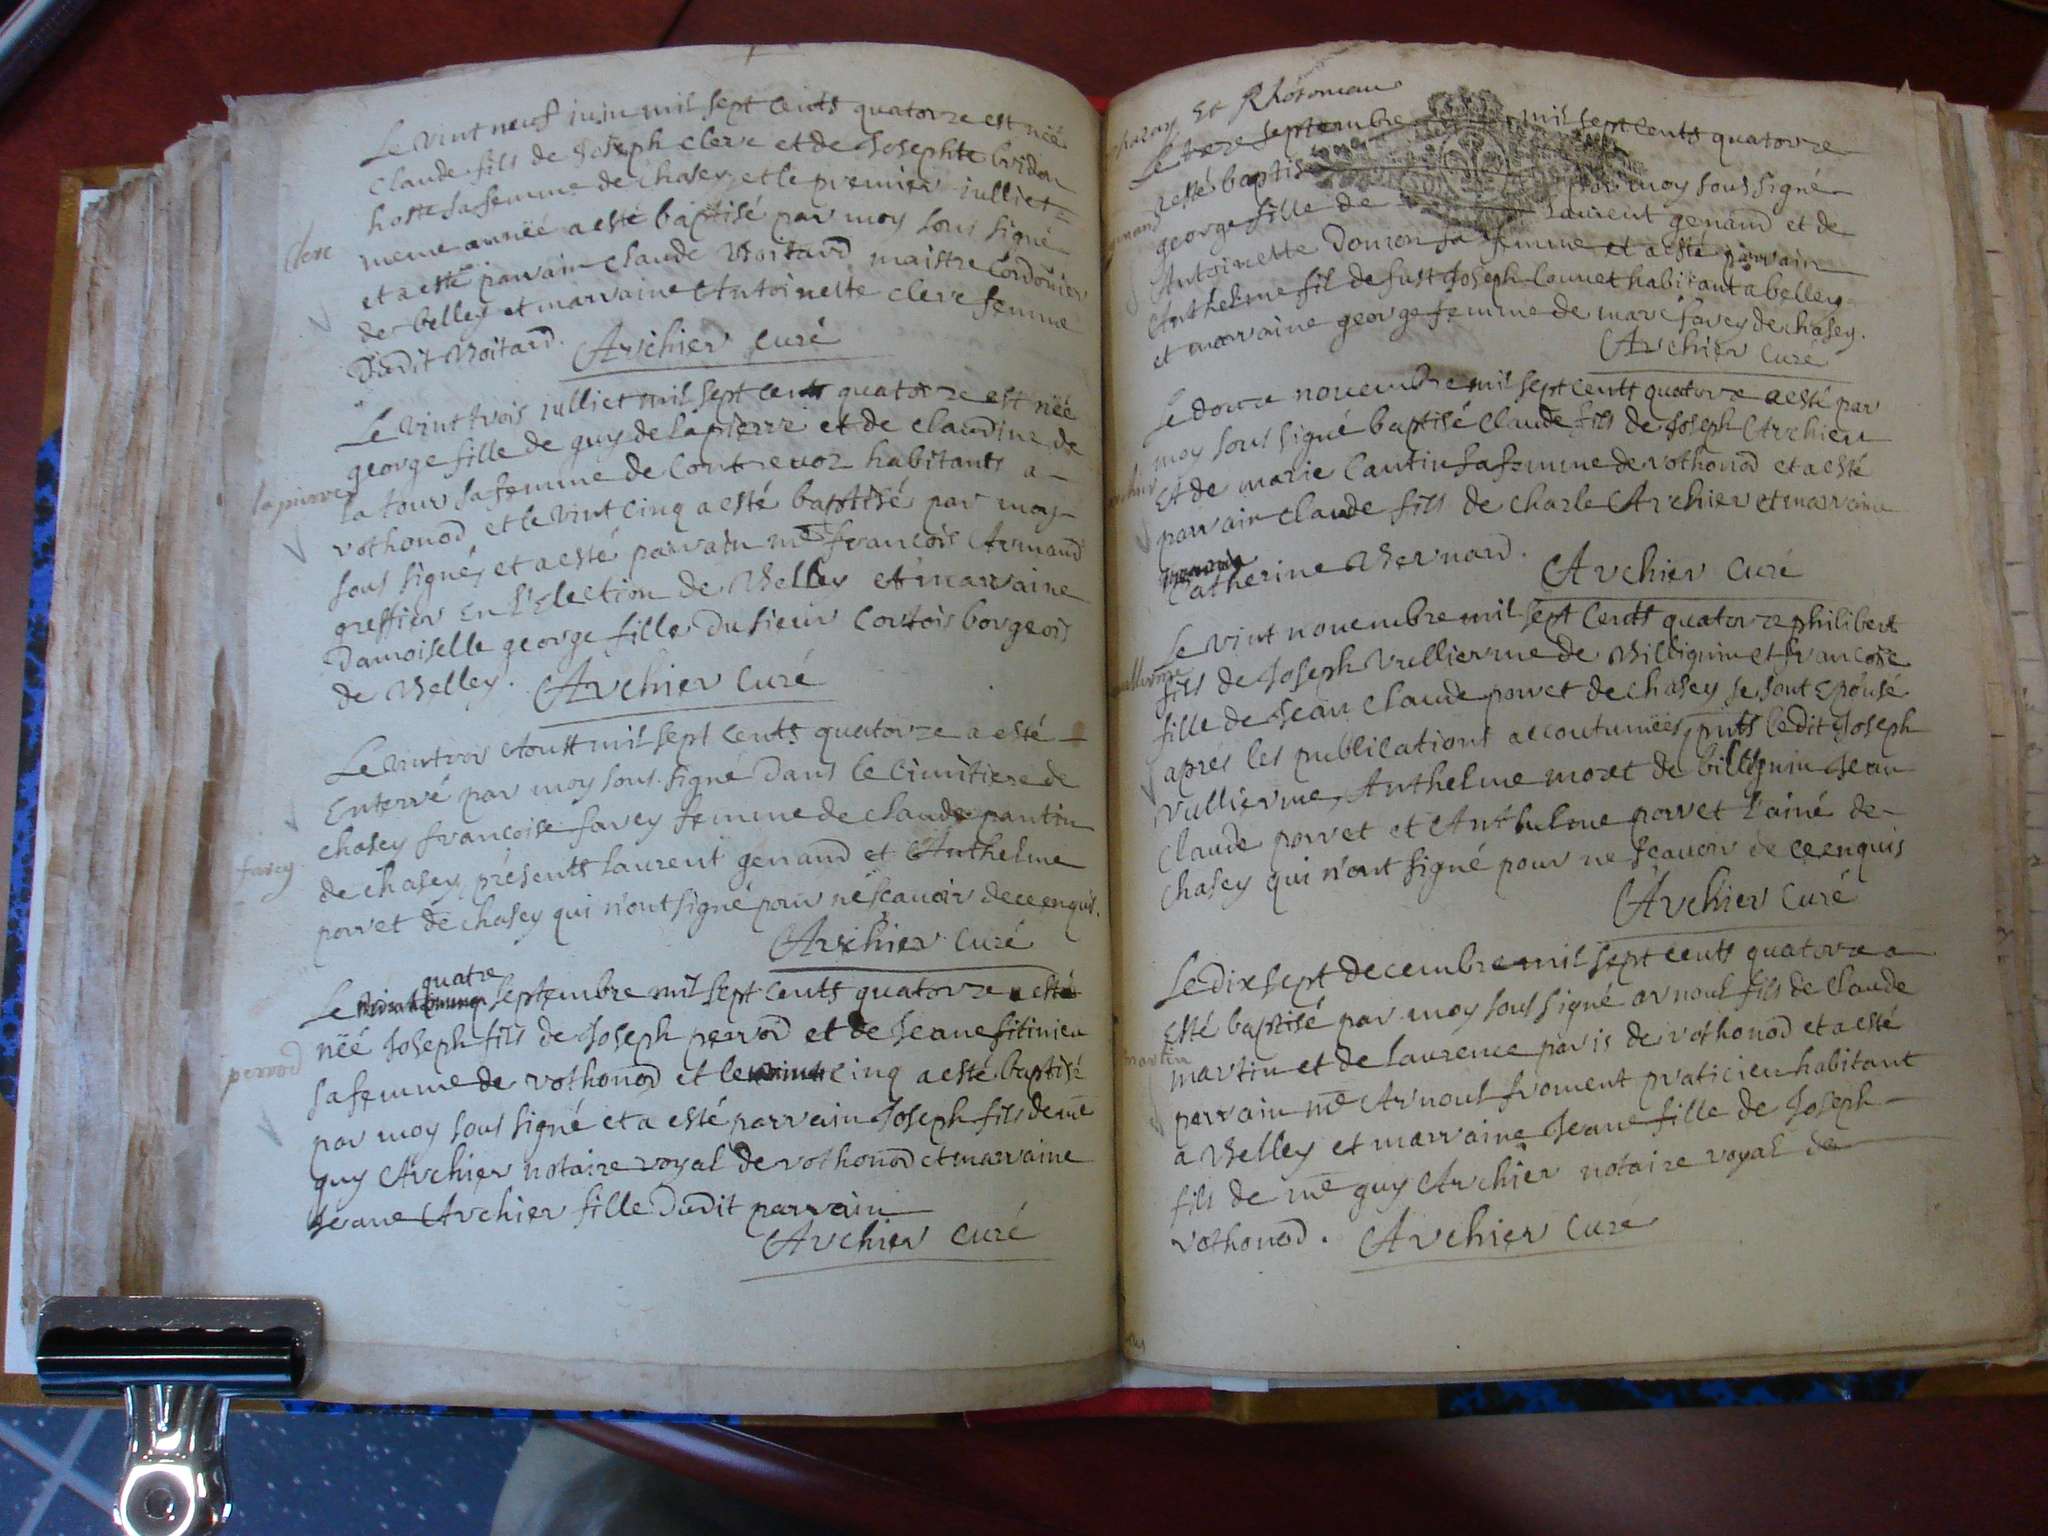 Le vint neuf iuin mil sept cents quatorze est néé
Claude fils de Joseph clerc et de Josephte bridon
hoste sa femme de chasey et le premier iulliet
meme annéé a esté baptisé par moy sous signé
clerc
et a esté parrain claude Voitard maistre Cordonier
de belley et marraine Antoinette clerc femme
dudit Voitard.
Archier Curé
Le vint trois iulliet mil sept cents quatorze est néé
george fille de guy de lapierre et de claudine de
la tour sa femme de Contrevoz habitants a
lapierre
vothonod et le vint cinq a esté baptisé par moy
sous signé, et a esté parrain me francois Armand
greffier En L'Election de Belley et marraine
Damoiselle george fille du sieur Cortois borgeois
de Belley. Archier Curé
Le vintrois Aoust mil sept cents quatorze a esté
Enterré par moy sous signé Dans le Cimitiere de
chasey francoise favey femme de claude pantin
favey
de chasey, présents laurent genand et Anthelme
porret de chasey qui n'ont signé pour ne scavoir de ce enquis.
Archier Curé
quatre
Le septembre mil sept cents quatorze a esté
néé Joseph fils de Joseph perrod et de Jeane fitinieu
perrod
sa femme de vothonod et le cinq a esté baptisé
par moy sous signé et a esté parrain Joseph fils de me
guy Archier notaire royal de vothonod et marraine
Jeane Archier fille Dudit parrain
Archier Curé
chazay Et Rhotonau
Le treze septembre mil sept cents quatorze
a esté baptisé par moy sous signé
george fille de laurent genand et de
genand
Antoinette Douzon sa femme et a esté parrain
Anthelme fil de fust Joseph Connet habitant a belley
et marraine george femme de marc favey de chasey.
Archier Curé
Le douze novembre mil sept cents quatorze a esté par
moy sous signé baptisé Claude fils de Joseph Archier
Et de marie Cantin sa femme de vothonod et a esté
archier
parrain claude fils de charle Archier et marraine
Catherine Bernard.
Archier Curé
Le vint novembre mil sept Cents quatorze philibert
fils de Joseph Vullierme de Billignin et francoise
vullierme
fille de Jean Claude porret de chasey se sont Epousé
aprés les publications accoutuméés, pnts ledit Joseph
Vullierme, Anthelme moret de billignin Jean
Claude porret et Anthelme porret l'ainé de
chasey qui n'ont signé pour ne scavoir de ce enquis
Archier Curé
Le dix sept decembre mil sept cents quatorze a
Esté baptisé par moy sous signé arnoul fils de claude
martin
martin et de laurence paris de vothonod et a esté
parrain me Arnoul froment praticien habitant
a Belley et marraine Jeane fille de Joseph
fils de me guy Archier notaire royal de
vothonod. Archier Curé